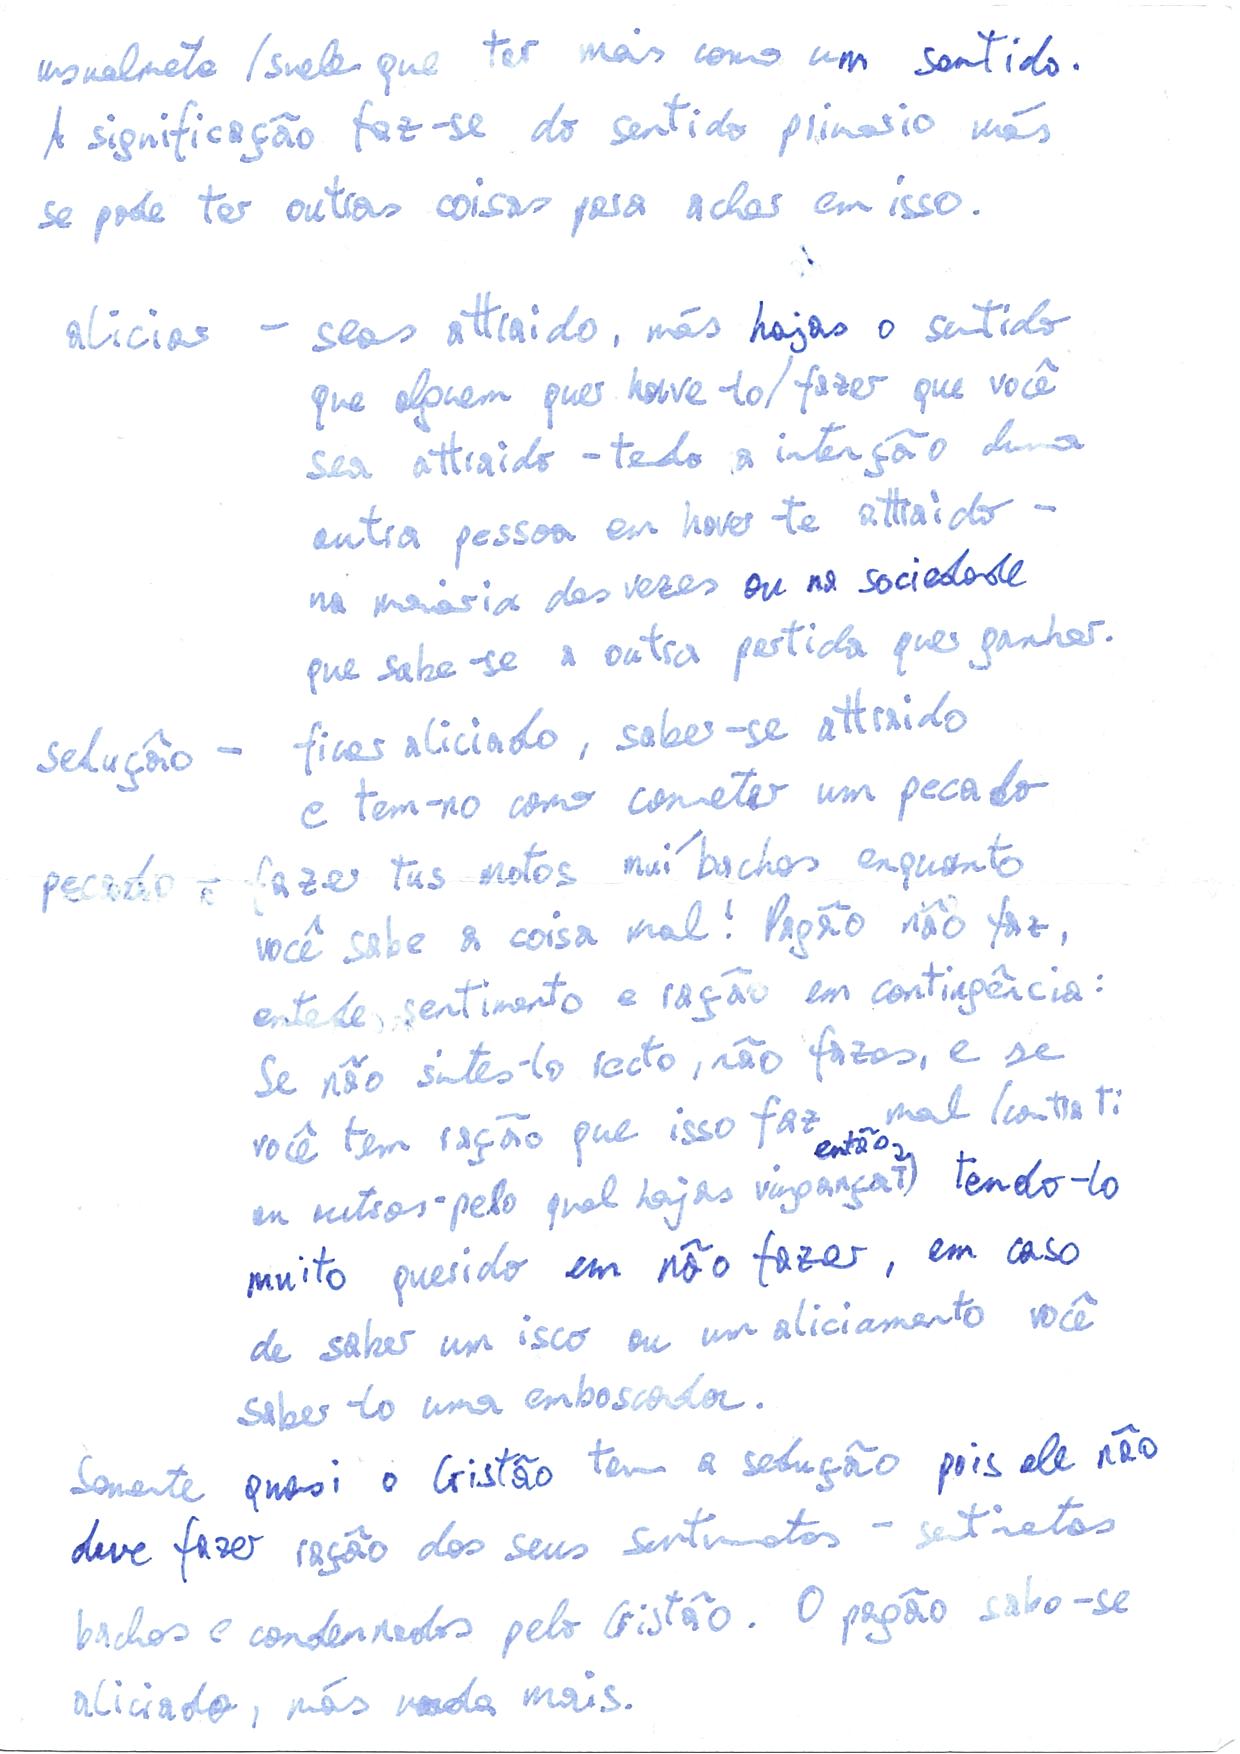 usualmete / suele que ter mais como um sentido.
A significação faz-se do sentido primario más
se pode ter outras coisas para achar em isso.
aliciar - seas attraido, más hajas o sentido
que alguem quer have-lo/fazer que você
sea attraido - tedo a intenção duma
outra pessoa em haver-te attraido -
na maioria das vezes ou na sociedade
que sabe-se a outra partida quer ganhar.
sedução - ficar aliciado, saber-se attraido
e tem-no como cometer um pecado
pecado = fazer tus motos muí bachos enquanto
você sabe a coisa mal! Pagão não faz,
entede, sentimento e ração em contingência:
Se não sintes-lo recto, não fazes, e se
você tem ração que isso faz mal (contra ti
ou outros - pelo qual hajas vingança?) então, tendo-lo
muito querido em não fazer, em caso
de saber um isco ou um aliciamento você
saber-lo uma emboscada.
Somente quasi o Cristão tem a sedução pois ele não
deve fazer ração dos seus sentimetos - setimetos
bachos e condennados pelo Cristão. O pagão sabe-se
aliciado, más nada mais.